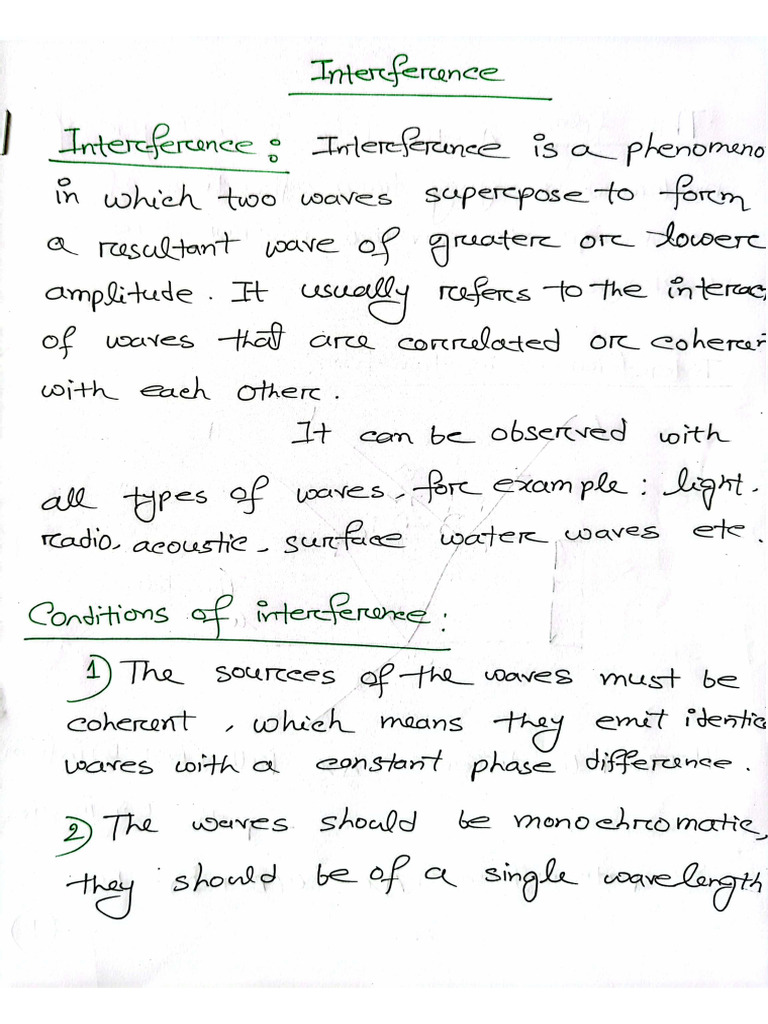 Interference
Interference: Interference is a phenomeno
in which two waves superpose to form
a resultant wave of greater or lower
amplitude. It usually refers to the interac
of waves that are correlated or coheren
with each other.
It can be observed with
all types of waves, for example: light,
radio, acoustic, surface water waves etc.
Conditions of interference:
1) The sources of the waves must be
coherent, which means they emit identic
waves with a constant phase difference.
2) The waves should be monochromatic,
they should be of a single wavelength